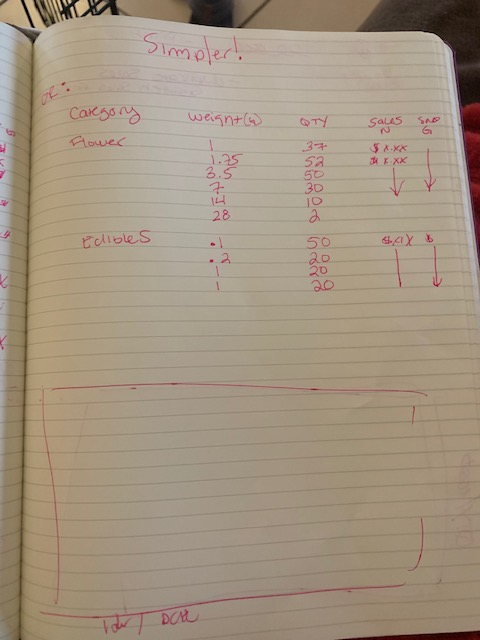 Simpler!
or:
Category Weight(g) QTY Sales N Sales G
Flower 1 37 $ x.xx
1.75 52 $ x.xx
3.5 50
7 30
14 10
28 2
Edibles .1 50 $
.2 20
1 20
1 20